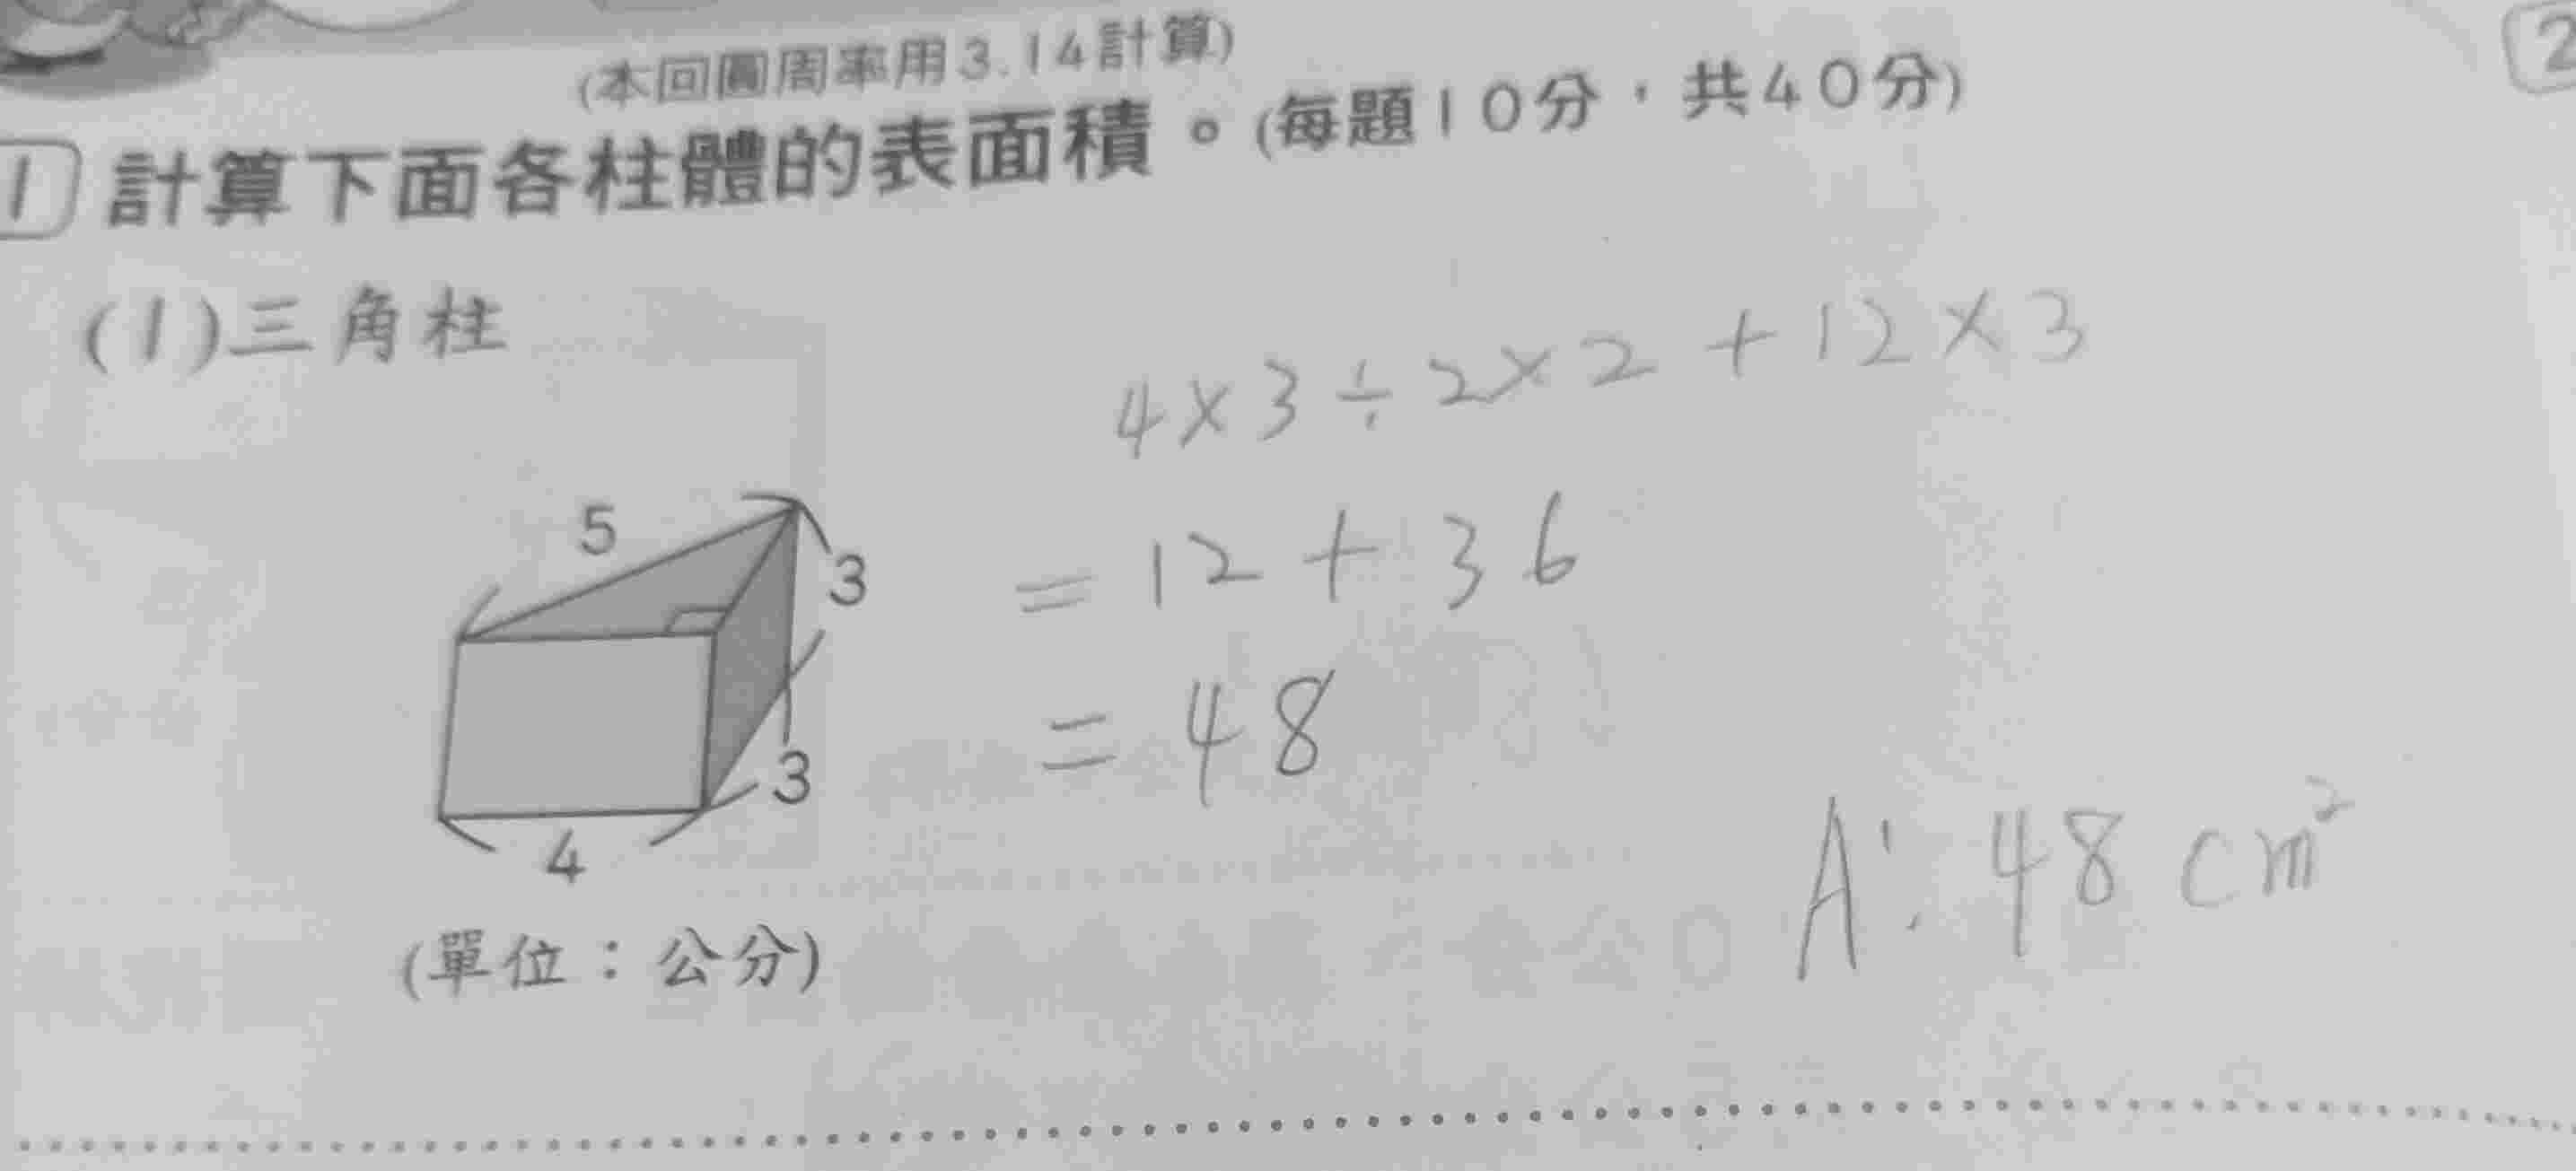 (本回圓周率用3.14計算)
1 計算下面各柱體的表面積。(每題10分，共40分)
2
(1)三角柱
4×3÷2×2+12×3
5
3
=12+36
3
=48
4
A:48cm²
(單位：公分)